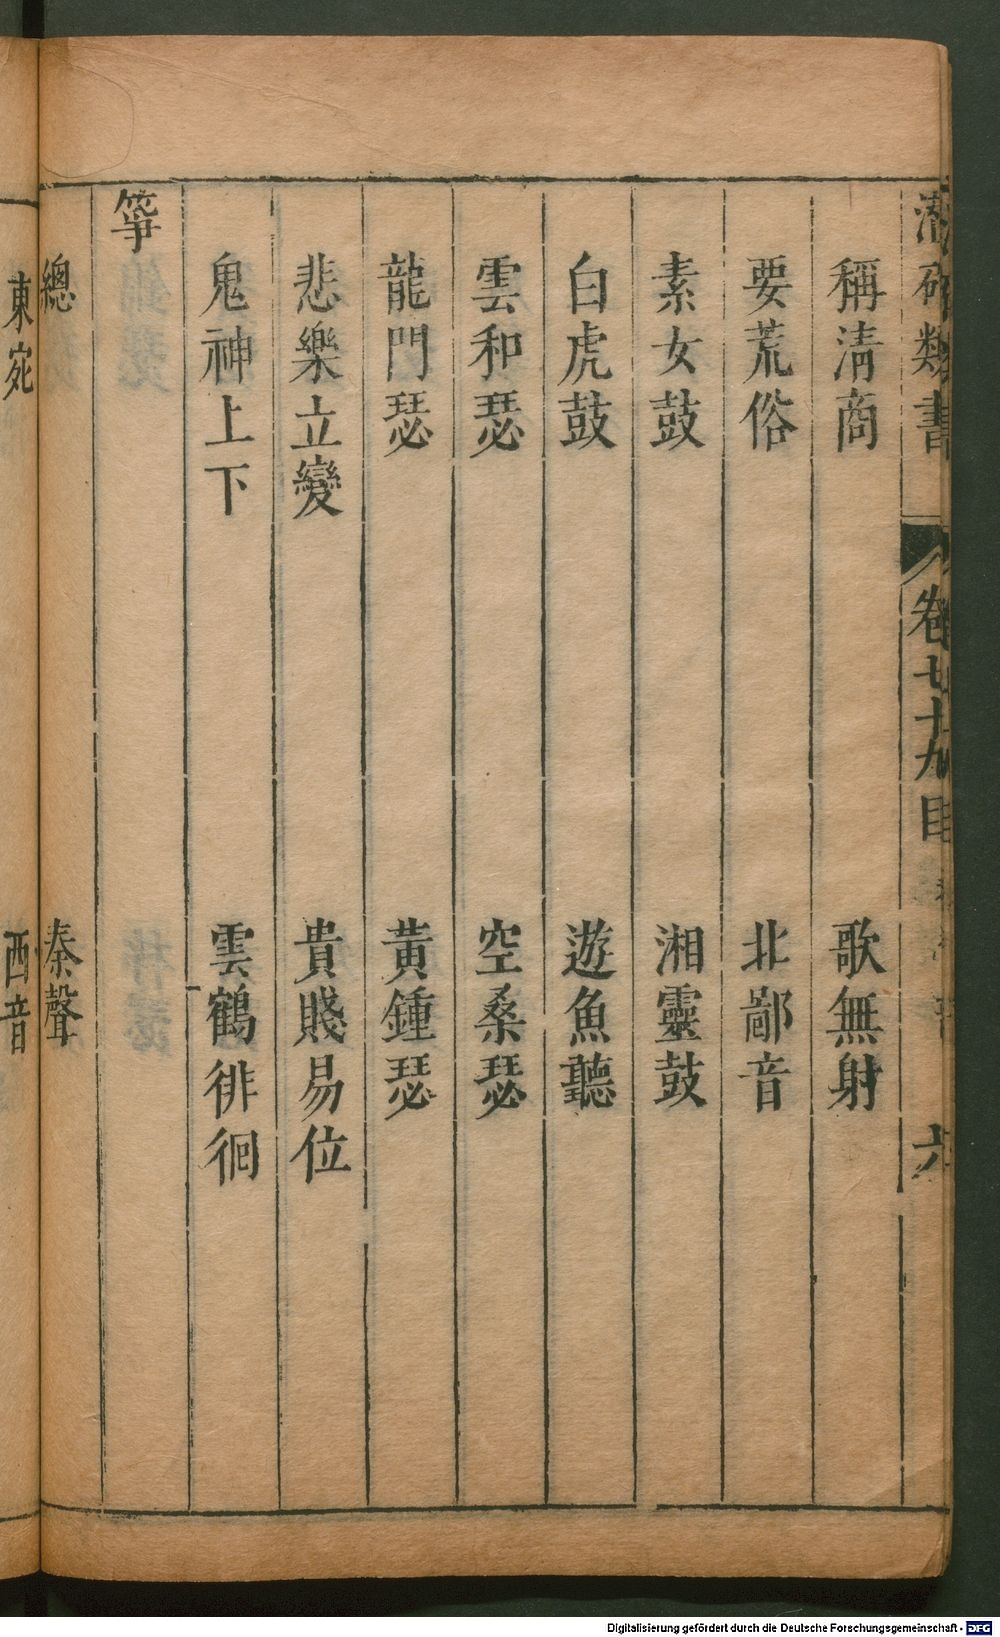 潛確類書 卷七十九目 六
稱清商 歌無射
要荒俗 北鄙音
素女鼓 湘靈鼓
白虎鼓 遊魚聽
雲和瑟 空桑瑟
龍門瑟 黄鍾瑟
悲樂立變 貴賤易位
鬼神上下 雲鶴徘徊
箏
總 秦聲
東宛 西音
Digitalisierung gefördert durch die Deutsche Forschungsgemeinschaft - DFG